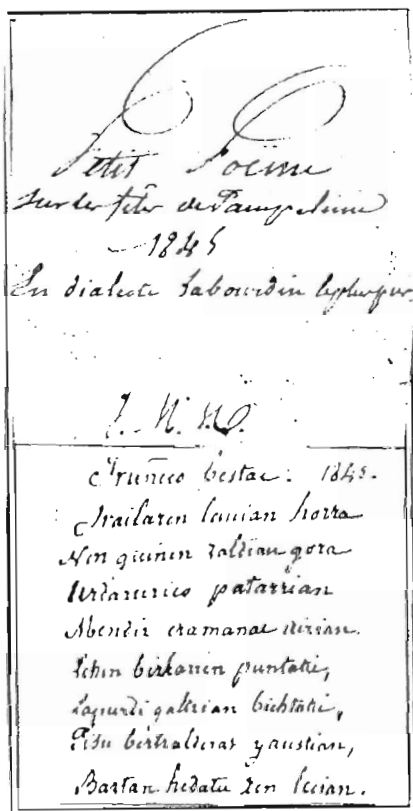 Petit Poëme
sur les fêtes de Pampelune
1845
En dialecte Labourdin le plus pur.
J. M. H.
Iruñeco bestac. 1845.
Irailaren lauian horra
Nin guinen zaldian gora
Urdazurico patarrian
Mendiz eramanac airian.
Lehen birkarren puntatic,
Lapurdi galtzian bichtatic,
Pisu bertzalderat jaustian,
Baztan hedatu zen lecian.